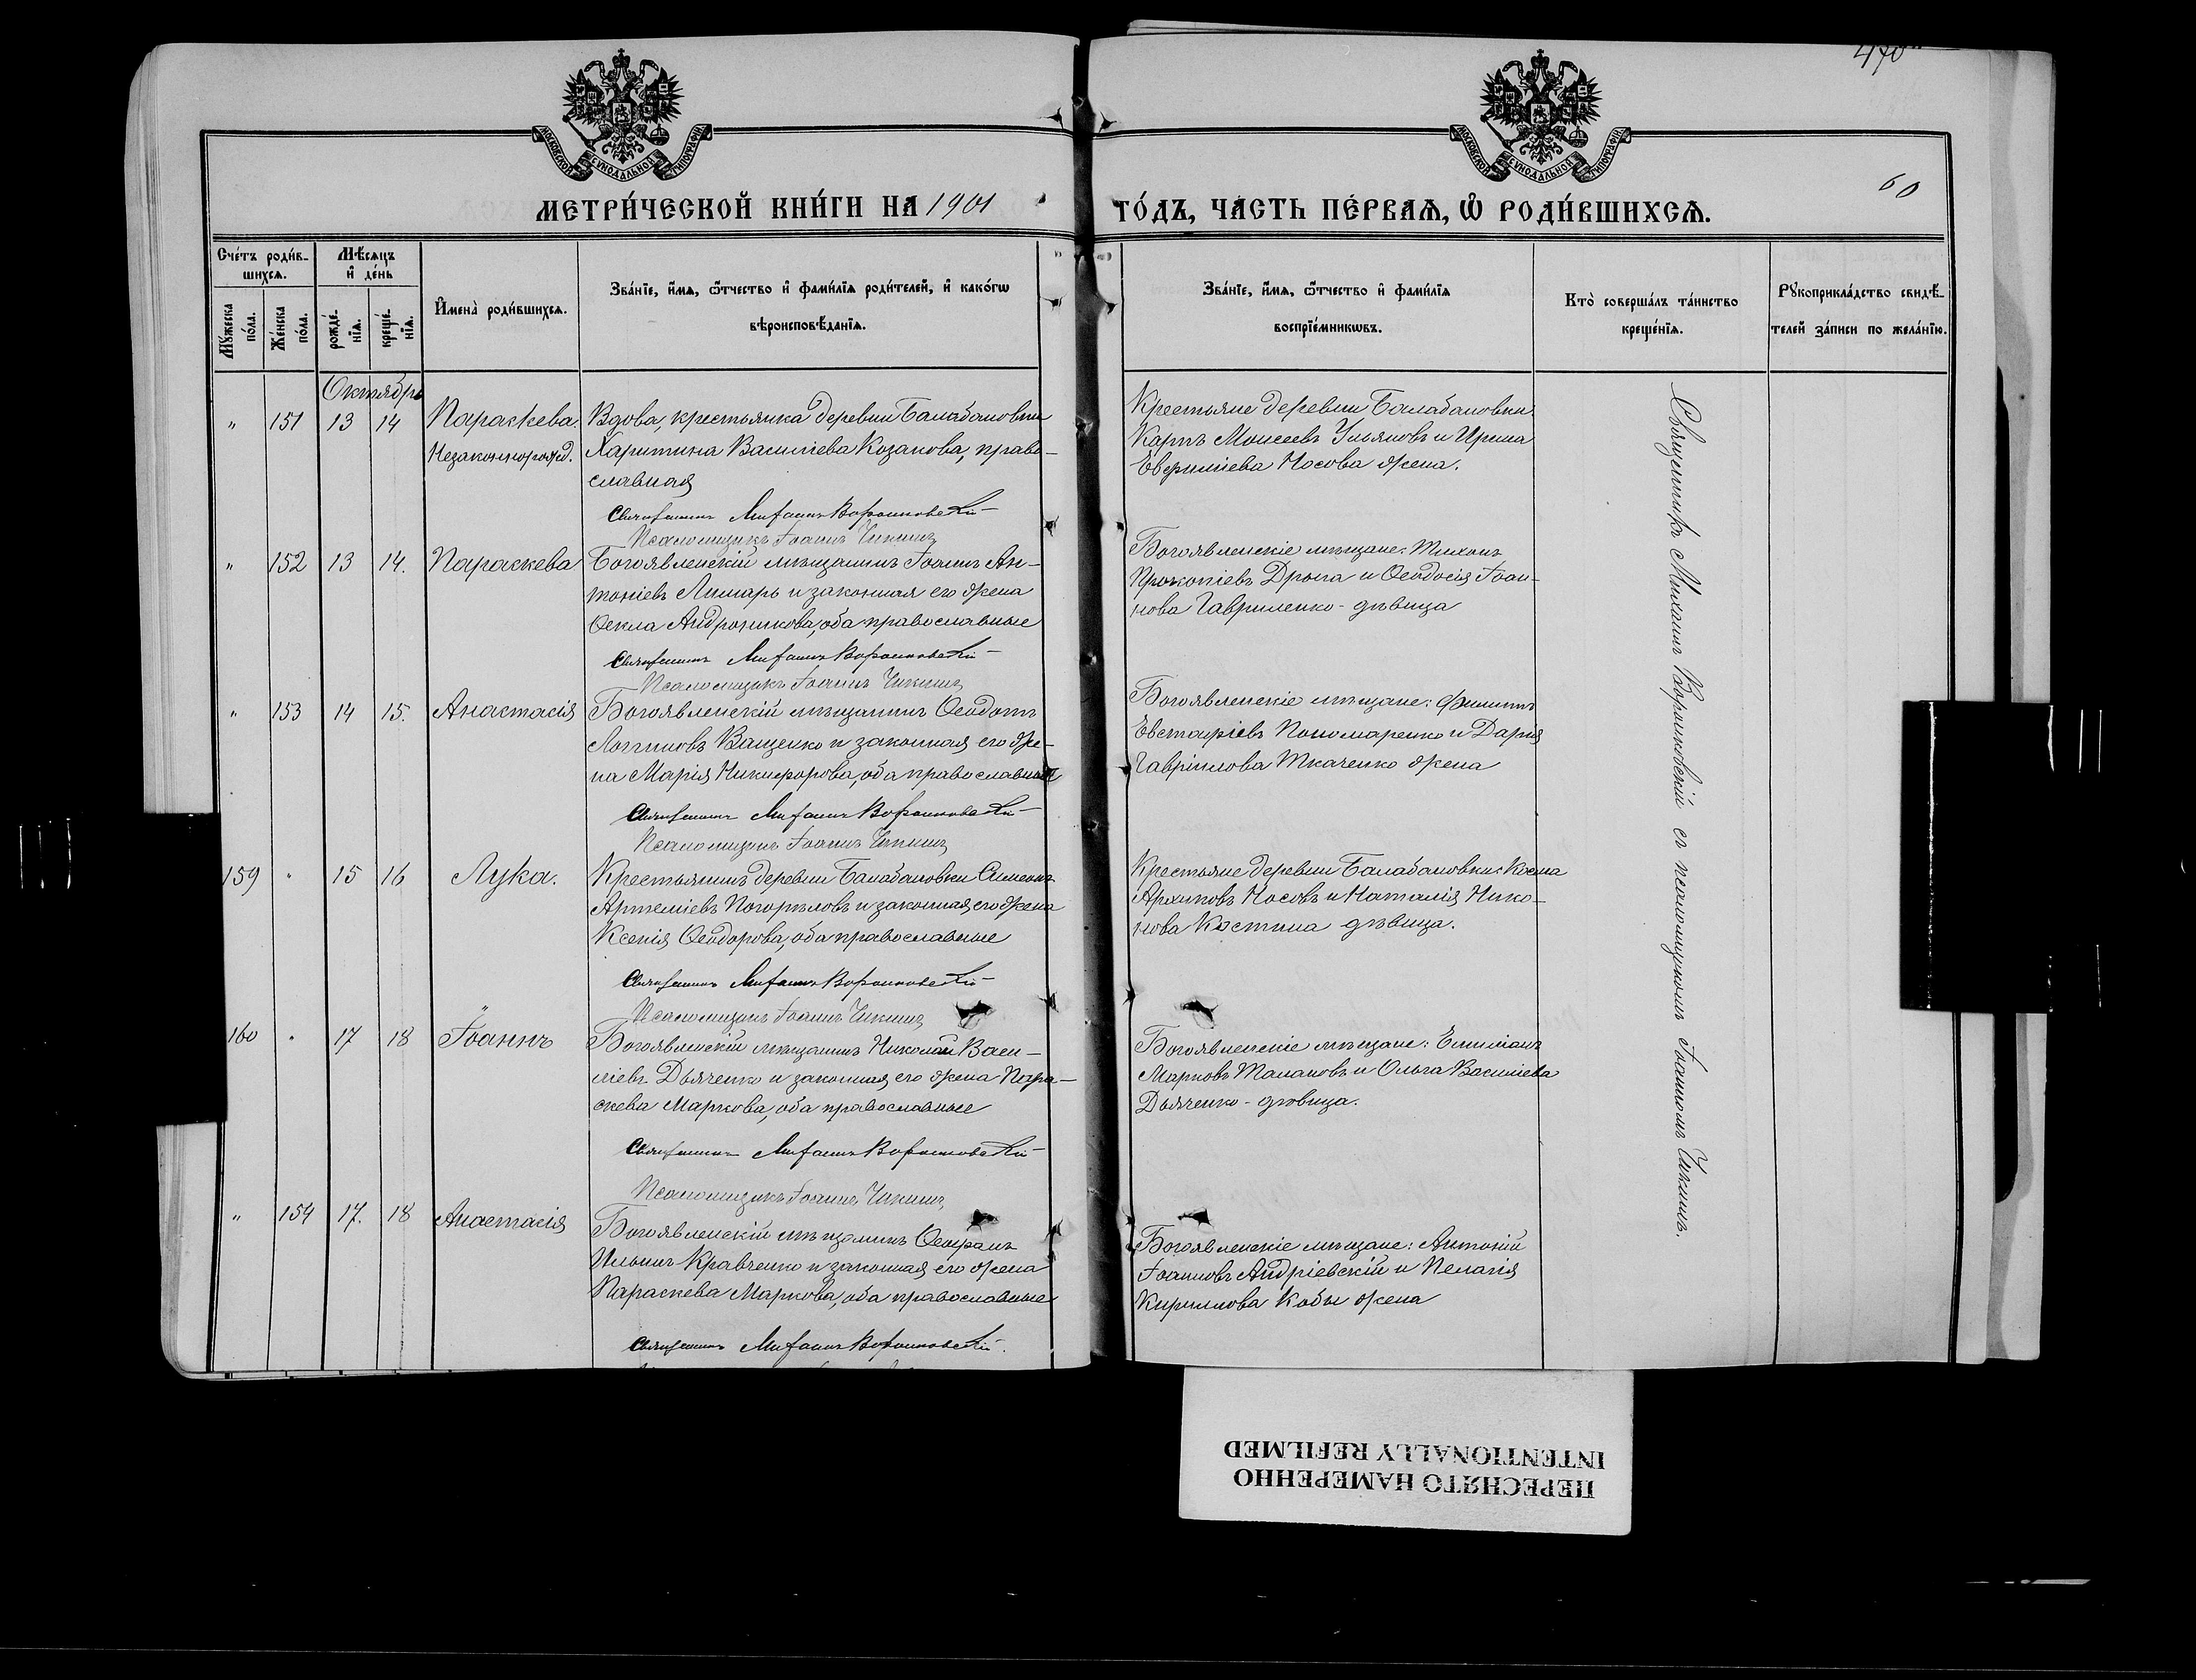 470
МОСКОВСКОЙ СѴНОДАЛЬНОЙ ТИПОГРАФІИ
МОСКОВСКОЙ СѴНОДАЛЬНОЙ ТИПОГРАФІИ
60
МЕТРИ́ЧЕСКОЙ КНИ́ГИ НА 1901
ГО́ДЪ, ЧАСТЬ ПЕ́РВАѦ, Ѽ РОДИ́ВШИХСѦ.
Сче́тъ роди́в-
шихсѧ.
Мѣ́сѧцъ
и҆ де́нь
Мꙋ́жеска
по́ла.
Же́нска
по́ла.
рожде́-
нїѧ.
креще́-
нїѧ.
И҆мена̀ роди́вшихсѧ.
Зва́нїе, и҆́мѧ, ѻ҆́тчество и҆ фами́лїѧ роди́телей, и҆ како́гѡ
вѣроисповѣ́данїѧ.
Зва́нїе, и҆́мѧ, ѻ҆́тчество и҆ фами́лїѧ
воспрїе́мникѡвъ.
Кто̀ соверша́лъ та́инство
креще́нїѧ.
Рꙋкоприкла́дство свидѣ́-
телей за́писи по жела́нїю.
Октябрь
" 151 13 14 Параскева. Вдова, крестьянка деревни Балабановки
Незаконнорожд. Харитина Василіева Козакова, право-
славная
Священникъ Михаилъ Воронковскій
Псаломщикъ Іоаннъ Чикинъ
Крестьяне деревни Балабановки
Карпъ Моисеевъ Ульяновъ и Ирина
Евфиміева Носова жена.
" 152 13 14. Параскева Богоявленскій мѣщанинъ Іоаннъ Ан-
тоніевъ Лимарь и законная его жена
Ѳекла Андроникова, оба православные
Священникъ Михаилъ Воронковскій
Псаломщикъ Іоаннъ Чикинъ
Богоявленскіе мѣщане: Тихонъ
Прокопіевъ Дрыга и Ѳеодосія Іоан-
нова Гавриленко - дѣвица
" 153 14 15. Анастасія Богоявленскій мѣщанинъ Ѳеодотъ
Логгиновъ Ващенко и законная его же-
на Марія Никифорова, оба православные
Священникъ Михаилъ Воронковскій
Псаломщикъ Іоаннъ Чикинъ
Богоявленскіе мѣщане: Филиппъ
Евстафіевъ Пономаренко и Дарія
Гавріилова Ткаченко жена
159 " 15 16 Лука. Крестьянинъ деревни Балабановки Симеонъ
Артеміевъ Погорѣловъ и законная его жена
Ксенія Ѳеодорова, оба православные
Священникъ Михаилъ Воронковскій
Псаломщикъ Іоаннъ Чикинъ
Крестьяне деревни Балабановки: Косма
Архиповъ Носовъ и Наталія Нико-
нова Костина дѣвица.
160 " 17 18 Іоаннъ Богоявленскій мѣщанинъ Николай Васи-
ліевъ Дьяченко и законная его жена Пара-
скева Маркова, оба православные
Священникъ Михаилъ Воронковскій
Псаломщикъ Іоаннъ Чикинъ
Богоявленскіе мѣщане: Емиліанъ
Марковъ Талановъ и Ольга Василіева
Дьяченко - дѣвица.
" 154 17. 18 Анастасія Богоявленскій мѣщанинъ Ѳеофанъ
Ильинъ Кравченко и законная его жена
Параскева Маркова, оба православные
Священникъ Михаилъ Воронковскій
Богоявленскіе мѣщане: Антоній
Іоанновъ Андріевскій и Пелагія
Кириллова Кобы жена
Священникъ Михаилъ Воронковскій съ псаломщикомъ Іоанномъ Чикинымъ.
ПЕРЕСНЯТО НАМЕРЕННО
INTENTIONALLY REFILMED